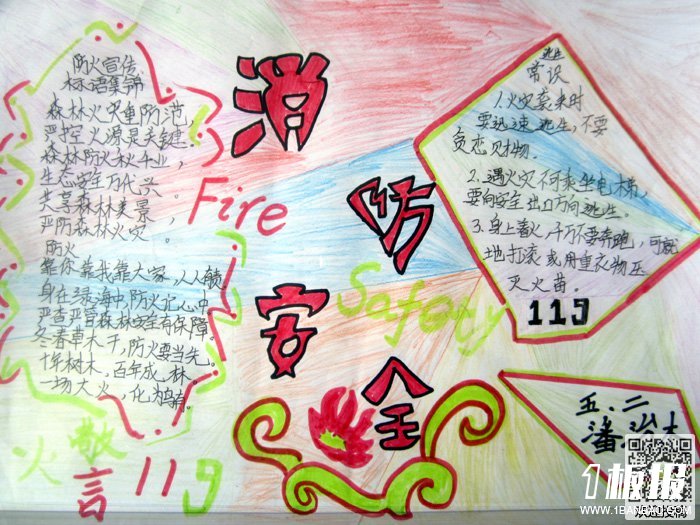 防火宣传
标语集锦
森林火灾重防范，
严控火源是关键。
森林防火秋千业，
生态安全万代兴。
共享森林美景，
严防森林火灾。
防火
靠你靠我靠大家，人人锁
身在绿海中，防火记心中
严查严管森林安全有保障。
冬春草木干，防火要当先。
十年树木，百年成林
一场大火，化为
火警
119
消防安全
Fire
Safety
逃生
常识
1.火灾袭来时
要迅速逃生，不要
贪恋财物。
2.遇火灾不可乘坐电梯，
要向安全出口方向逃生。
3.身上着火，千万不要奔跑，可就
地打滚或用重衣物压
灭火苗。
119
五.二
潘
1板报
WWW.1BANBAO.COM